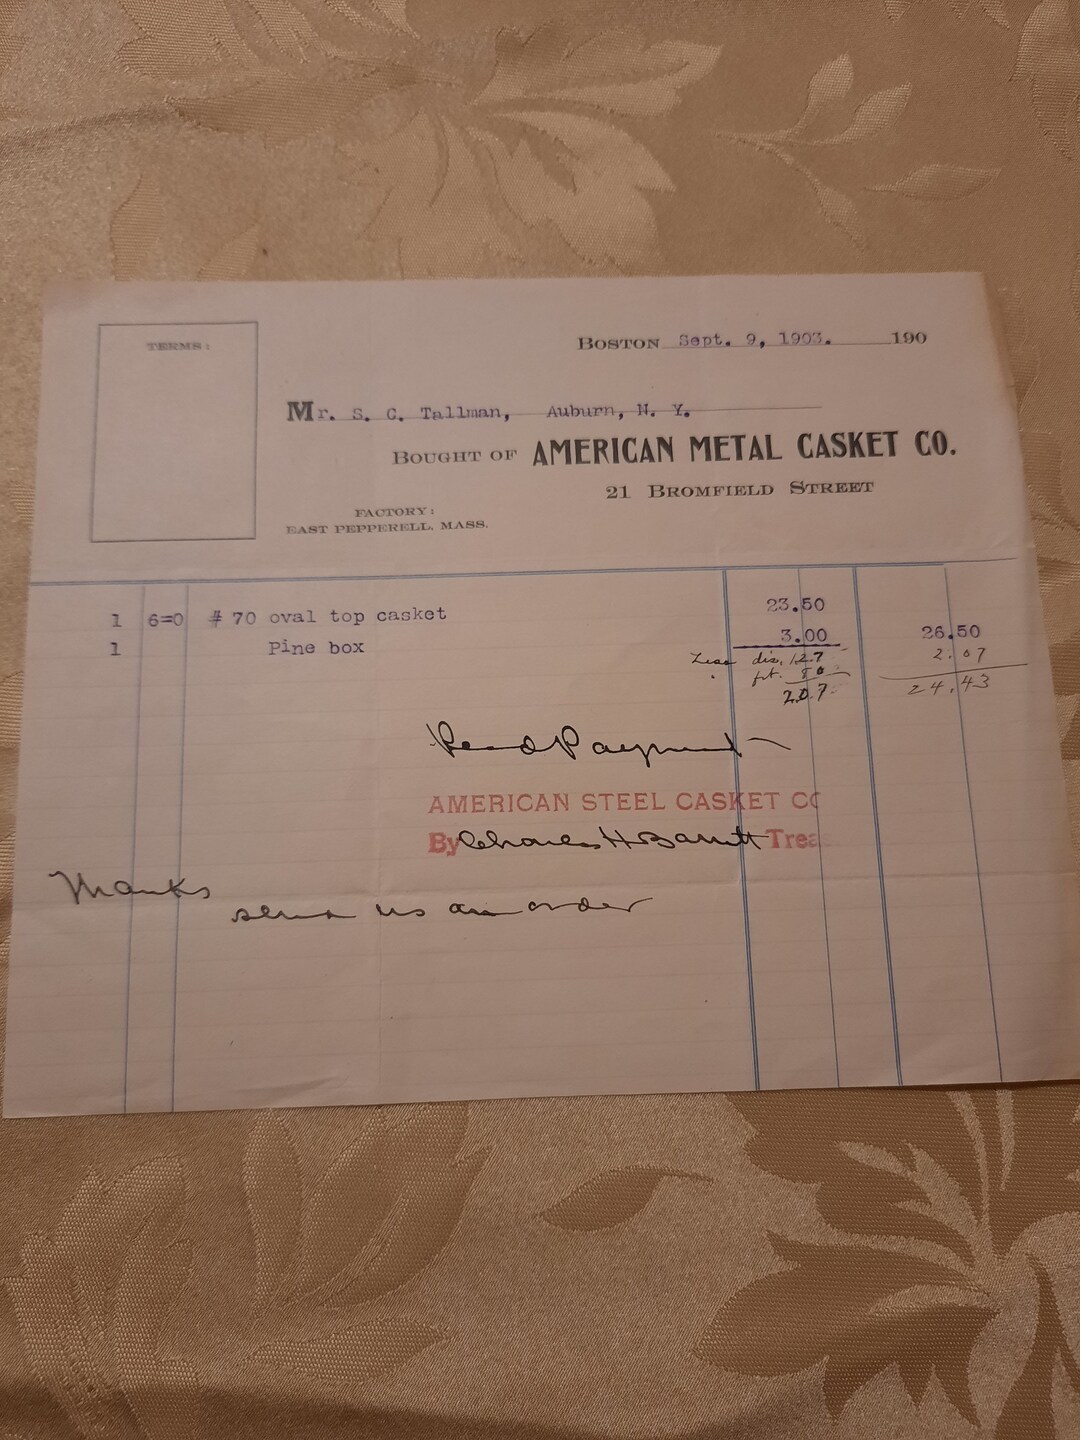 TERMS:
BOSTON Sept. 9, 1903. 190
Mr. S. C. Tallman, Auburn, N. Y.
BOUGHT OF AMERICAN METAL CASKET CO.
21 BROMFIELD STREET
FACTORY:
EAST PEPPERELL, MASS.
1 6=0 # 70 oval top casket 23.50
1 Pine box 3.00 26.50
Less dis. 1.27 2.07
frt. 80 24.43
2.07
Recd Payment
AMERICAN STEEL CASKET CO
By Charles H Barrett Treas
Thanks
send us an order